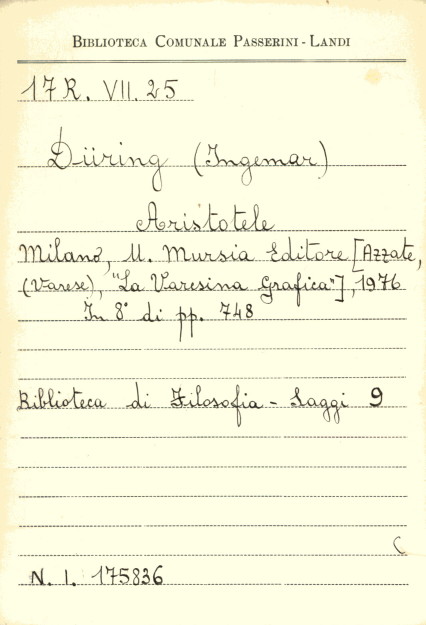 BIBLIOTECA COMUNALE PASSERINI - LANDI
17 R. VII. 25
Düring (Ingemar)
Aristotele
Milano, U. Mursia Editore [Azzate,
(Varese), "La Varesina Grafica"], 1976
In 8° di pp. 748
Biblioteca di Filosofia - Saggi 9
C
N. I. 175836